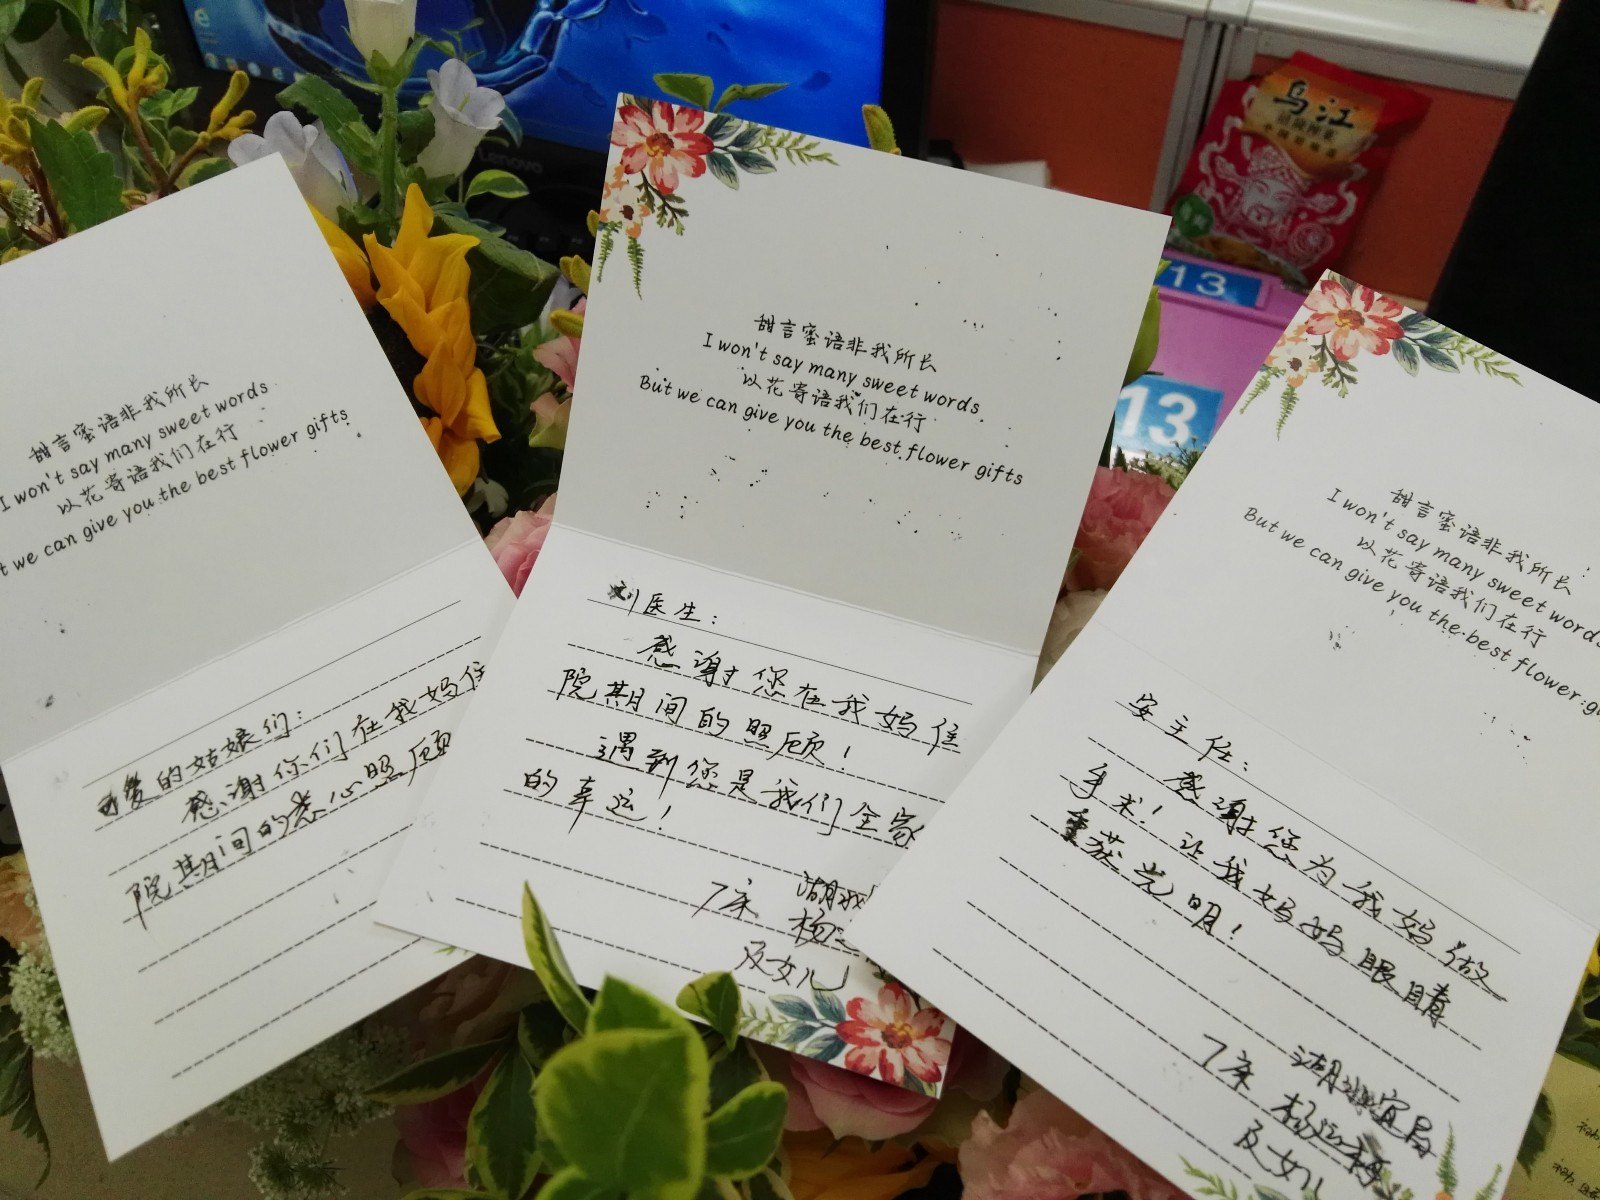 甜言蜜语非我所长
I won't say many sweet words
以花寄语我们在行
t we can give you the best flower gifts
可爱的姑娘们:
感谢你们在我妈住
院期间的悉心照顾
Lenovo
甜言蜜语非我所长
I won't say many sweet words
以花寄语我们在行
But we can give you the best flower gifts
刘医生:
感谢您在我妈住
院期间的照顾!
遇到您是我们全家
的幸运!
7床
及女儿
乌江
13
13
甜言蜜语非我所长
I won't say many sweet words
以花寄语我们在行
But we can give you the best flower gi
安主任:
感谢您为我妈做
手术! 让我妈妈眼睛
重获光明!
湖北宜昌
7床
及女儿